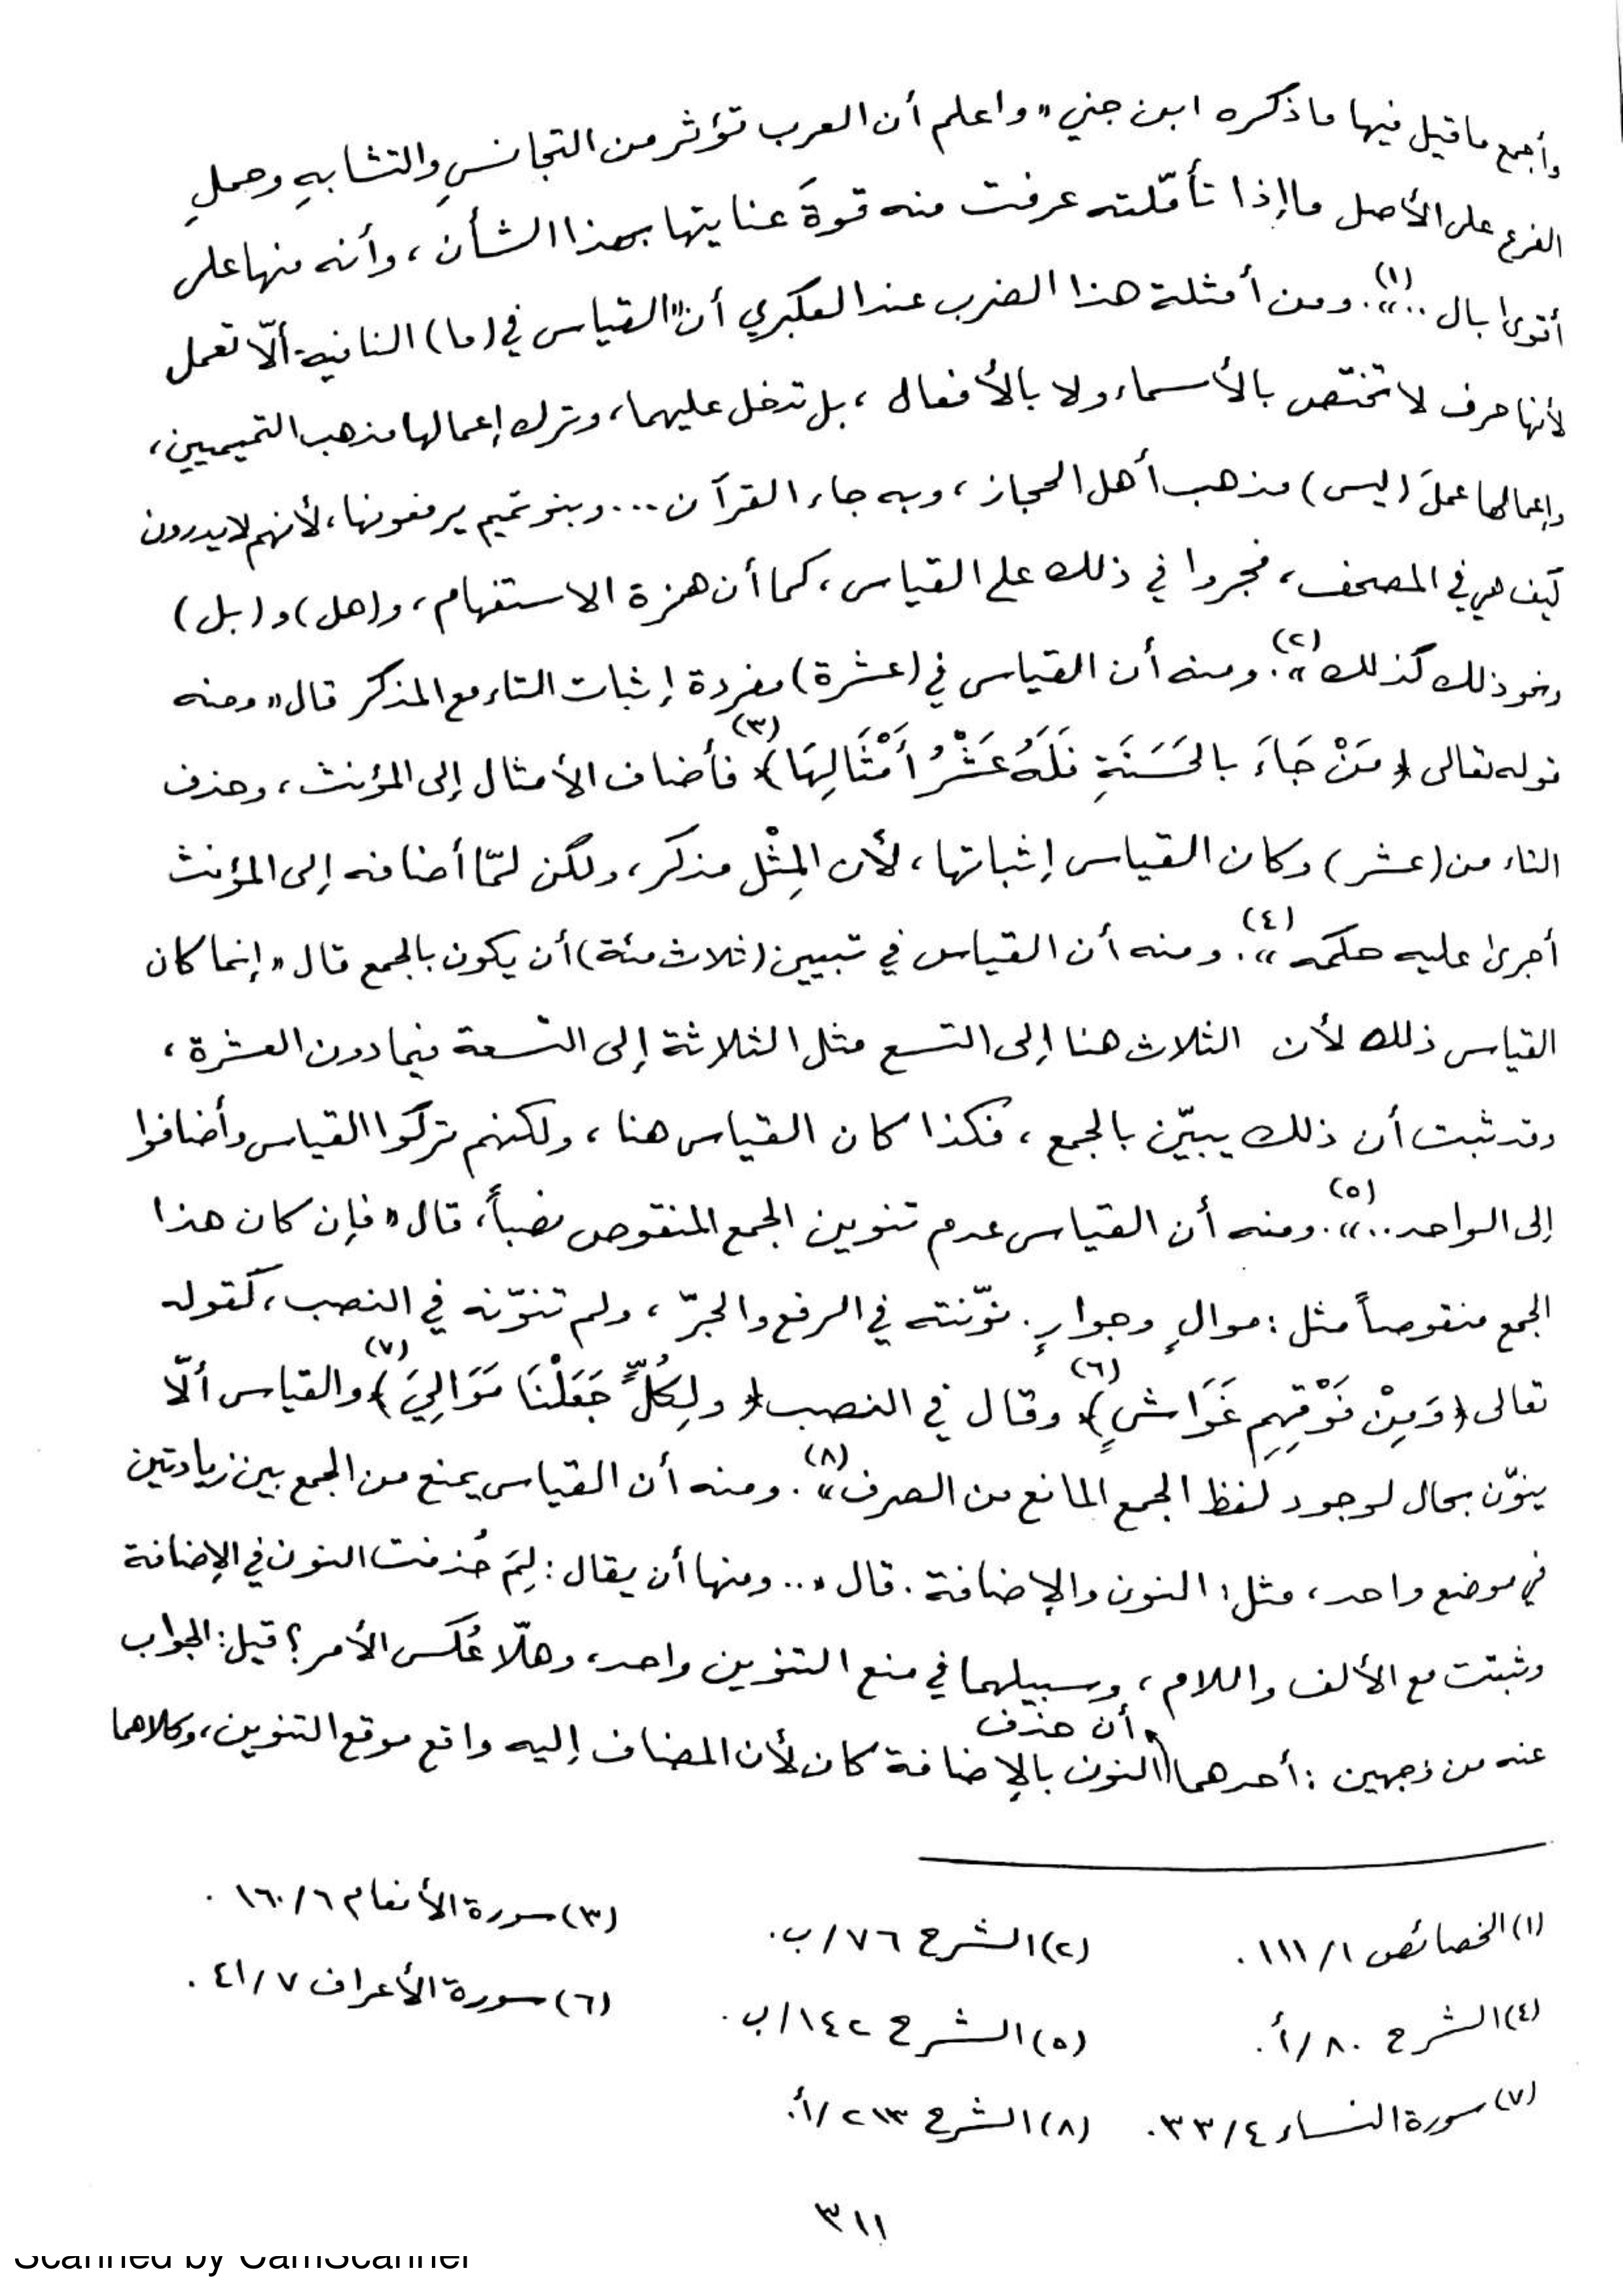 وأجمع ما قيل فيها ما ذكره ابن جني "واعلم أن العرب تؤثر من التجانسِ والتشابهِ وحملِ
الفرع على الأصل ما إذا تأمّلته عرفت منه قوةَ عنايتها بهذا الشأن، وأنه منها على
أقوى بال .."(١). ومن أمثلة هذا الضرب عند العكبري أن "القياس في (ما) النافية ألّا تعمل
لأنها حرف لا تختص بالأسماء ولا بالأفعال، بل تدخل عليهما، وترك إعمالها مذهب التميميين،
وإعمالها عملَ (ليس) مذهب أهل الحجاز، وبه جاء القرآن ... وبنو تميم يرفعونها، لأنهم لا يدرون
كيف هي في المصحف، فجروا في ذلك على القياس، كما أن همزة الاستفهام، و(هل) و(بل)
ونحو ذلك كذلك"(٢). ومنه أن القياس في (عشرة) مفردة إثبات التاء مع المذكر قال "ومنه
قوله تعالى ﴿مَنْ جَاءَ بالحَسَنَةِ فَلَهُ عَشْرُ أَمْثَالِهَا﴾(٣) فأضاف الأمثال إلى المؤنث، وحذف
التاء من (عشر) وكان القياس إثباتها، لأن المِثْل مذكر، ولكن لمّا أضافه إلى المؤنث
أجرى عليه حكمه"(٤). ومنه أن القياس في تبيين (ثلاث مئة) أن يكون بالجمع قال "إنما كان
القياس ذلك لأن الثلاث هنا إلى التسع مثل الثلاثة إلى التسعة فيما دون العشرة،
وقد ثبت أن ذلك يبيّن بالجمع، فكذا كان القياس هنا، ولكنهم تركوا القياس وأضافوا
إلى الواحد .."(٥). ومنه أن القياس عدم تنوين الجمع المنقوص نصباً، قال "فإن كان هذا
الجمع منقوصاً مثل: موالٍ وجوارٍ. نوّنته في الرفع والجرّ، ولم تنوّنه في النصب، كقوله
تعالى ﴿وَمِنْ فَوْقِهِم غَوَاشٍ﴾(٦) وقال في النصب ﴿ولِكُلٍّ جَعَلْنَا مَوَالِيَ﴾(٧) والقياس ألّا
ينوّن بحال لوجود لفظ الجمع المانع من الصرف"(٨). ومنه أن القياس يمنع من الجمع بين زيادتين
في موضع واحد، مثل: النون والإضافة. قال ".. ومنها أن يقال: لِمَ حُذفت النون في الإضافة
وثبتت مع الألف واللام، وسبيلهما في منع التنوين واحد، وهلّا عُكس الأمر؟ قيل: الجواب
عنه من وجهين: أحدهما أن حذف النون بالإضافة كان لأن المضاف إليه واقع موقع التنوين، وكلاهما
(١) الخصائص ١/١١١. (٢) الشرح ٧٦/ب. (٣) سورة الأنعام ٦/١٦٠.
(٤) الشرح ٨٠/أ. (٥) الشرح ١٤٢/ب. (٦) سورة الأعراف ٧/٤١.
(٧) سورة النساء ٤/٣٣. (٨) الشرح ٢١٣/أ.
٣١١
Scanned by CamScanner